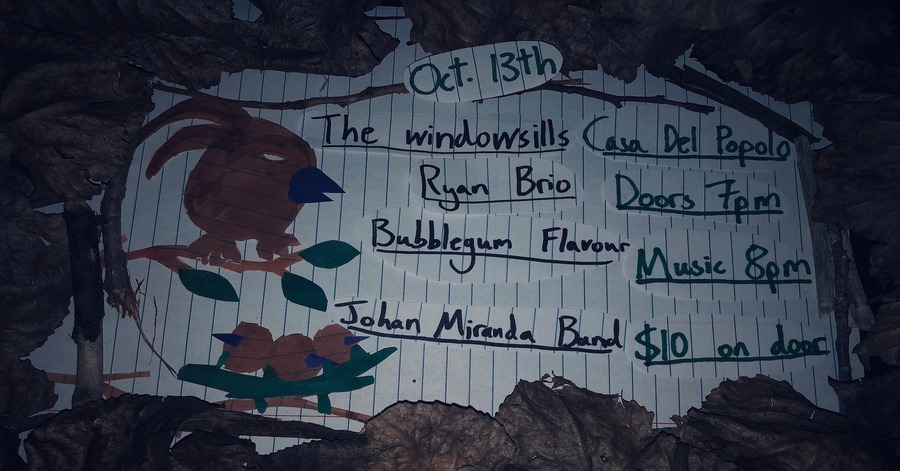 Oct. 13th
The windowsills
Ryan Brio
Bubblegum Flavour
Johan Miranda Band
Casa Del Popolo
Doors 7pm
Music 8pm
$10 on door